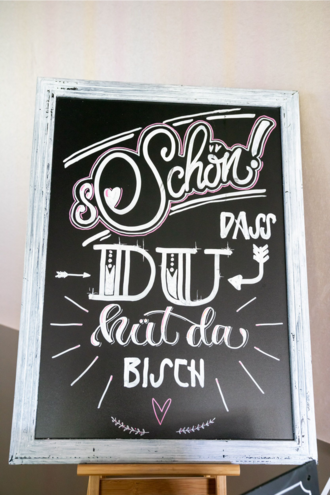 so Schön!
DASS
DU
hüt da
BISCH